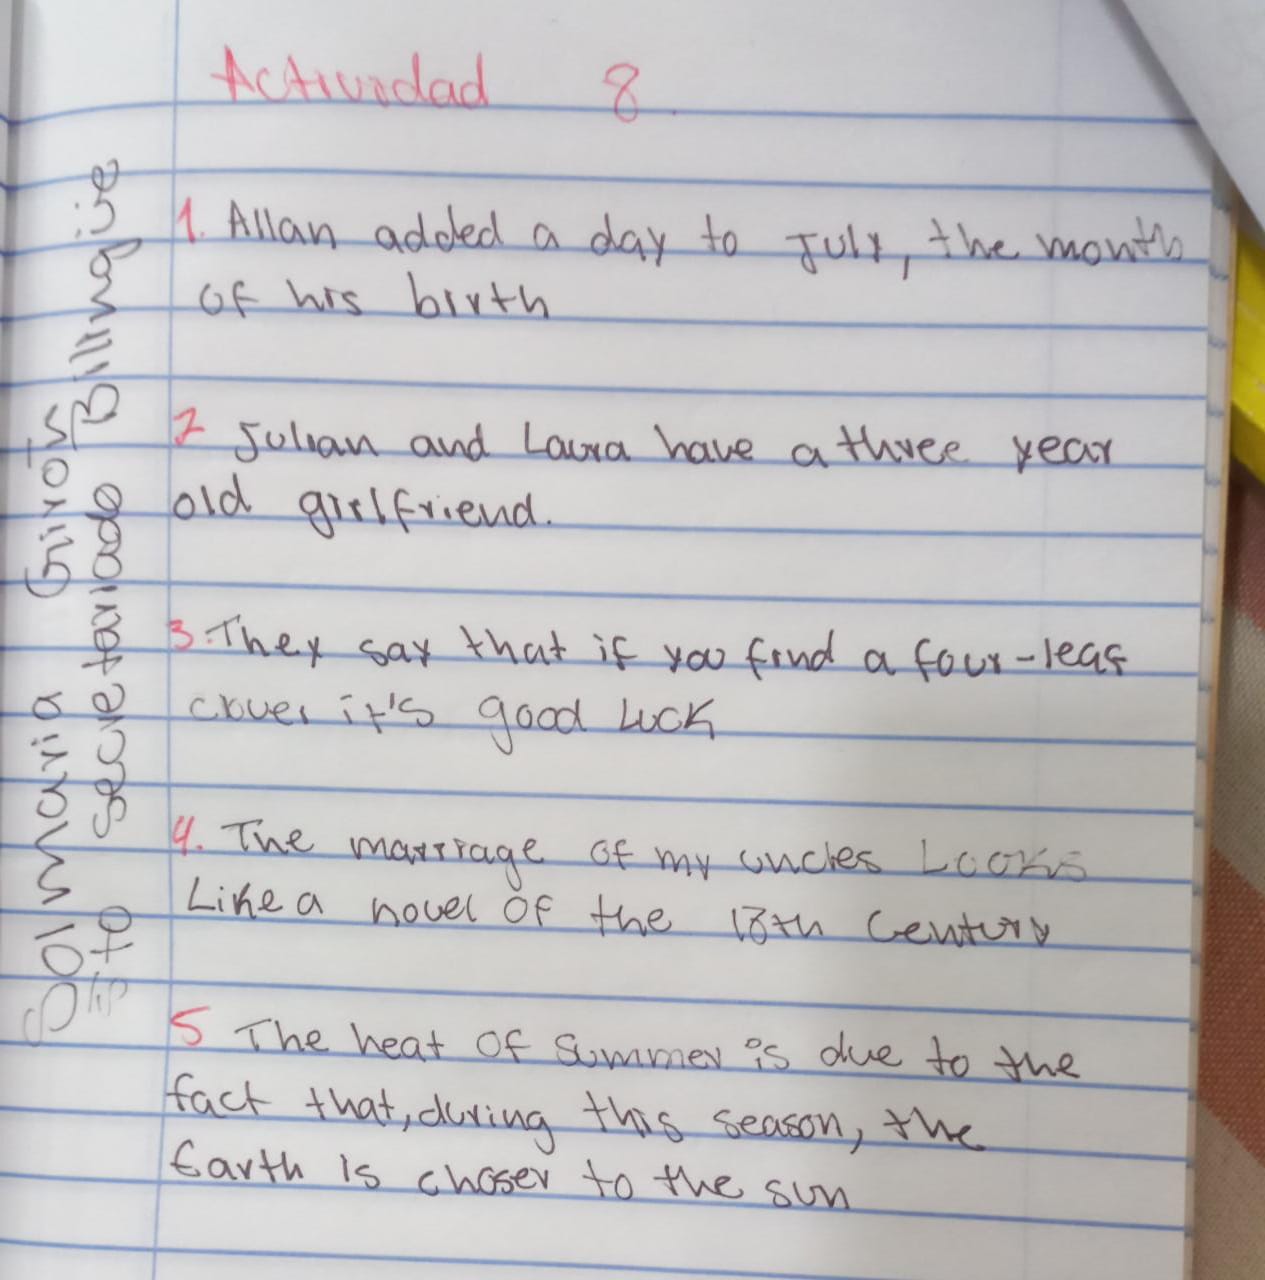 Actividad 8
1. Allan added a day to July, the month
of his birth
2 Julian and Laura have a three year
old girlfriend.
3. They say that if you find a four-leaf
clover it's good luck
4. The marriage of my uncles Looks
Like a novel of the 18th Century
5 The heat of summer is due to the
fact that, during this season, the
Earth is choser to the sun
Sol maria Quiros
Sito secretariado Billingüe